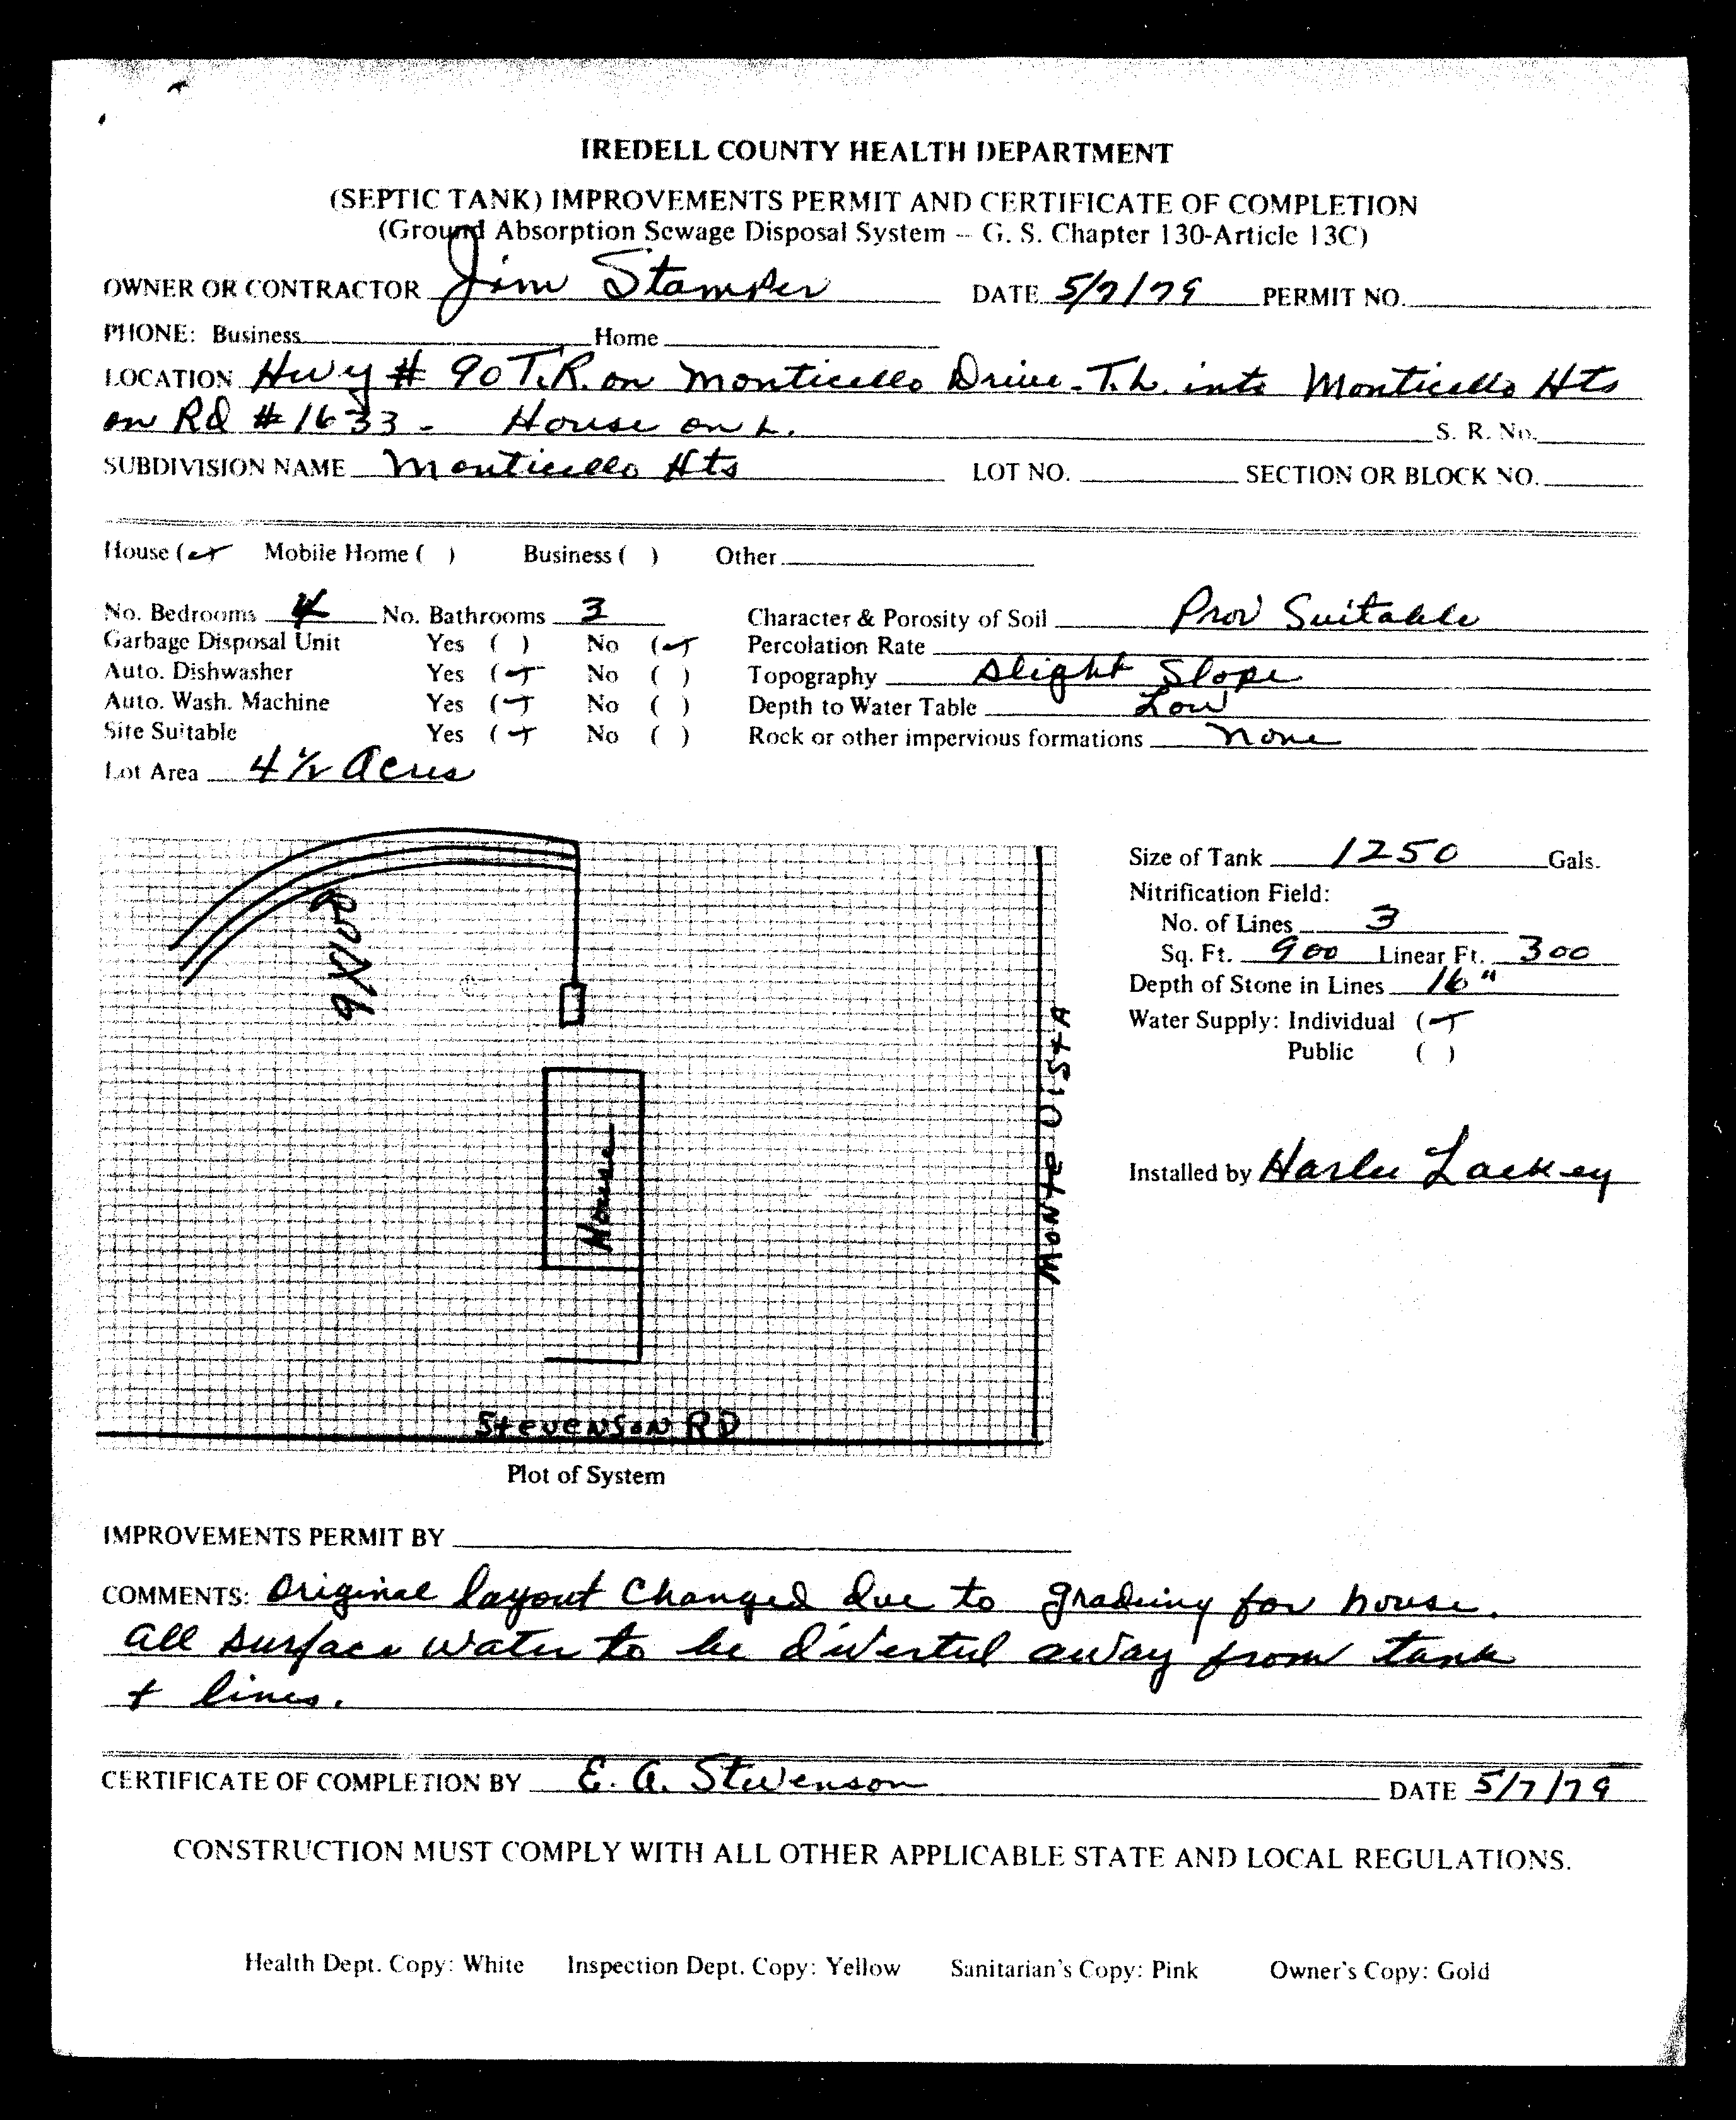 IREDELL COUNTY HEALTH DEPARTMENT
(SEPTIC TANK) IMPROVEMENTS PERMIT AND CERTIFICATE OF COMPLETION
(Ground Absorption Sewage Disposal System -- G. S. Chapter 130-Article 13C)
OWNER OR CONTRACTOR Jim Stamper DATE 5/7/79 PERMIT NO.
PHONE: Business Home
LOCATION Hwy # 90 T.R. on Monticello Drive - T.L. into Monticello Hts
on Rd # 1633 - House on L. S. R. No.
SUBDIVISION NAME Monticello Hts LOT NO. SECTION OR BLOCK NO.
House (✓) Mobile Home ( ) Business ( ) Other
No. Bedrooms 4 No. Bathrooms 3 Character & Porosity of Soil Prov Suitable
Garbage Disposal Unit Yes ( ) No (✓) Percolation Rate
Auto. Dishwasher Yes (✓) No ( ) Topography Slight Slope
Auto. Wash. Machine Yes (✓) No ( ) Depth to Water Table Low
Site Suitable Yes (✓) No ( ) Rock or other impervious formations None
Lot Area 4 1/2 Acres
Size of Tank 1250 Gals.
Nitrification Field:
No. of Lines 3
Sq. Ft. 900 Linear Ft. 300
Depth of Stone in Lines 16"
Water Supply: Individual (✓)
Public ( )
Installed by Harlee Lackey
9X100
House
MONTE VISTA
Stevenson RD
Plot of System
IMPROVEMENTS PERMIT BY
COMMENTS: Original layout changed due to grading for house.
all surface water to be diverted away from tank
+ lines.
CERTIFICATE OF COMPLETION BY E. A. Stevenson DATE 5/7/79
CONSTRUCTION MUST COMPLY WITH ALL OTHER APPLICABLE STATE AND LOCAL REGULATIONS.
Health Dept. Copy: White Inspection Dept. Copy: Yellow Sanitarian's Copy: Pink Owner's Copy: Gold